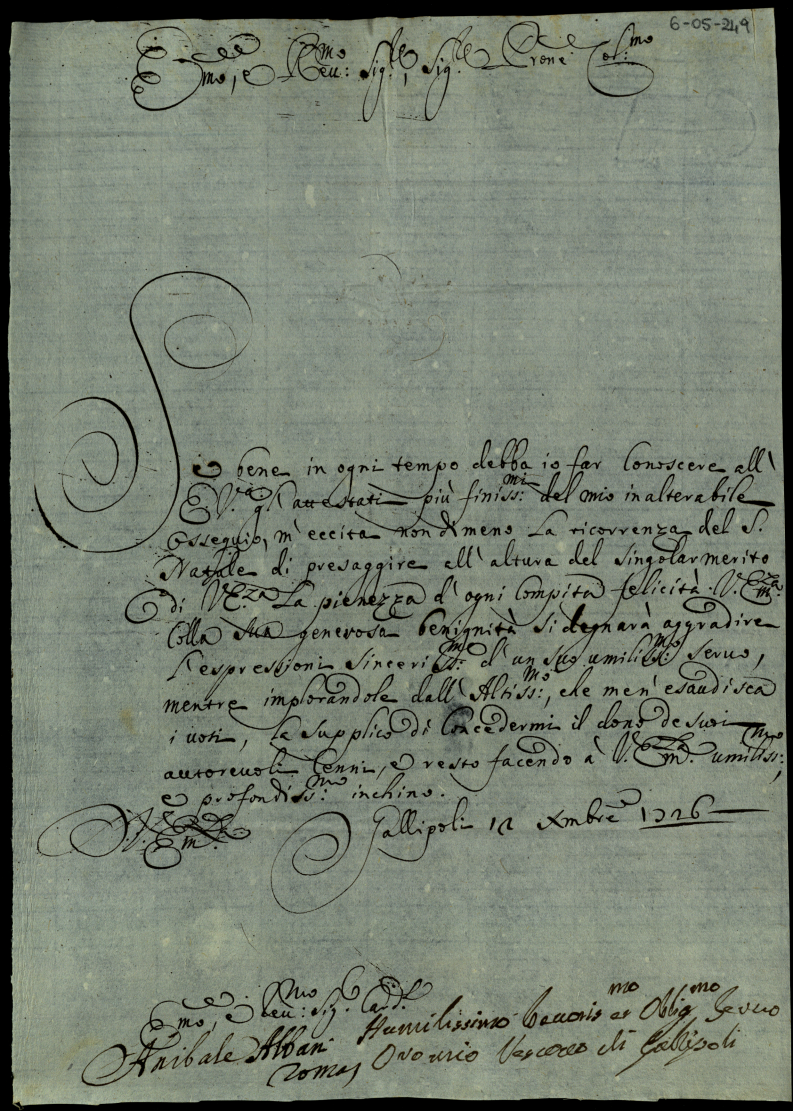 6-05-249
Em̃o, e Reu:mo Sig.re, Sig.re Prone Col:mo
Se bene in ogni tempo debba io far Conoscere all'
E V.a gl'attestati più finiss:mi del mio inalterabile
ossequio, m'eccita non dimeno La ricorrenza del S.
Natale di presaggire all'altura del singolar merito
di V.E.za La pienezza d'ogni compita felicità. V. Em.za
Colla sua generosa benignità si degnarà aggradire
L'espressioni sinceriss:me d'un suo umiliss:mo seruo,
mentre implorandole dall'Altiss:mo, che men' esaudisca
i uoti, La supplico di Concedermi il dono de suoi
autoreuoli Cenni, e resto facendo à V. Em.za umiliss:mo,
e profondiss:mo inchino.
D. V. Em.za
Gallipoli 12 Xmbre 1726
Em̃o, e Reu:mo Sig. Card.le
Anibale Albani
Roma
Humilissimo et Oblig.mo Seruo
Oronzio Vescouo di Gallipoli